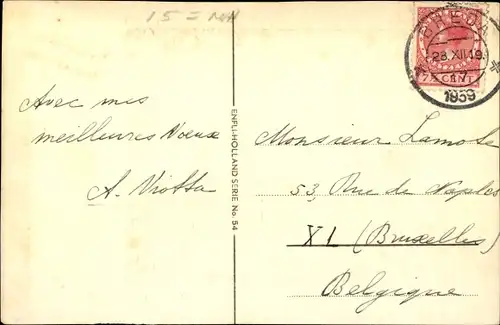 15 =
BREDA
28.XII.19
7½ CENT
1939
Avec mes
meilleures Voeux
A. Viotta
ENFI.-HOLLAND SERIE No. 54
Monsieur Lamote
53, Rue de Naples
XL (Bruxelles)
Belgique